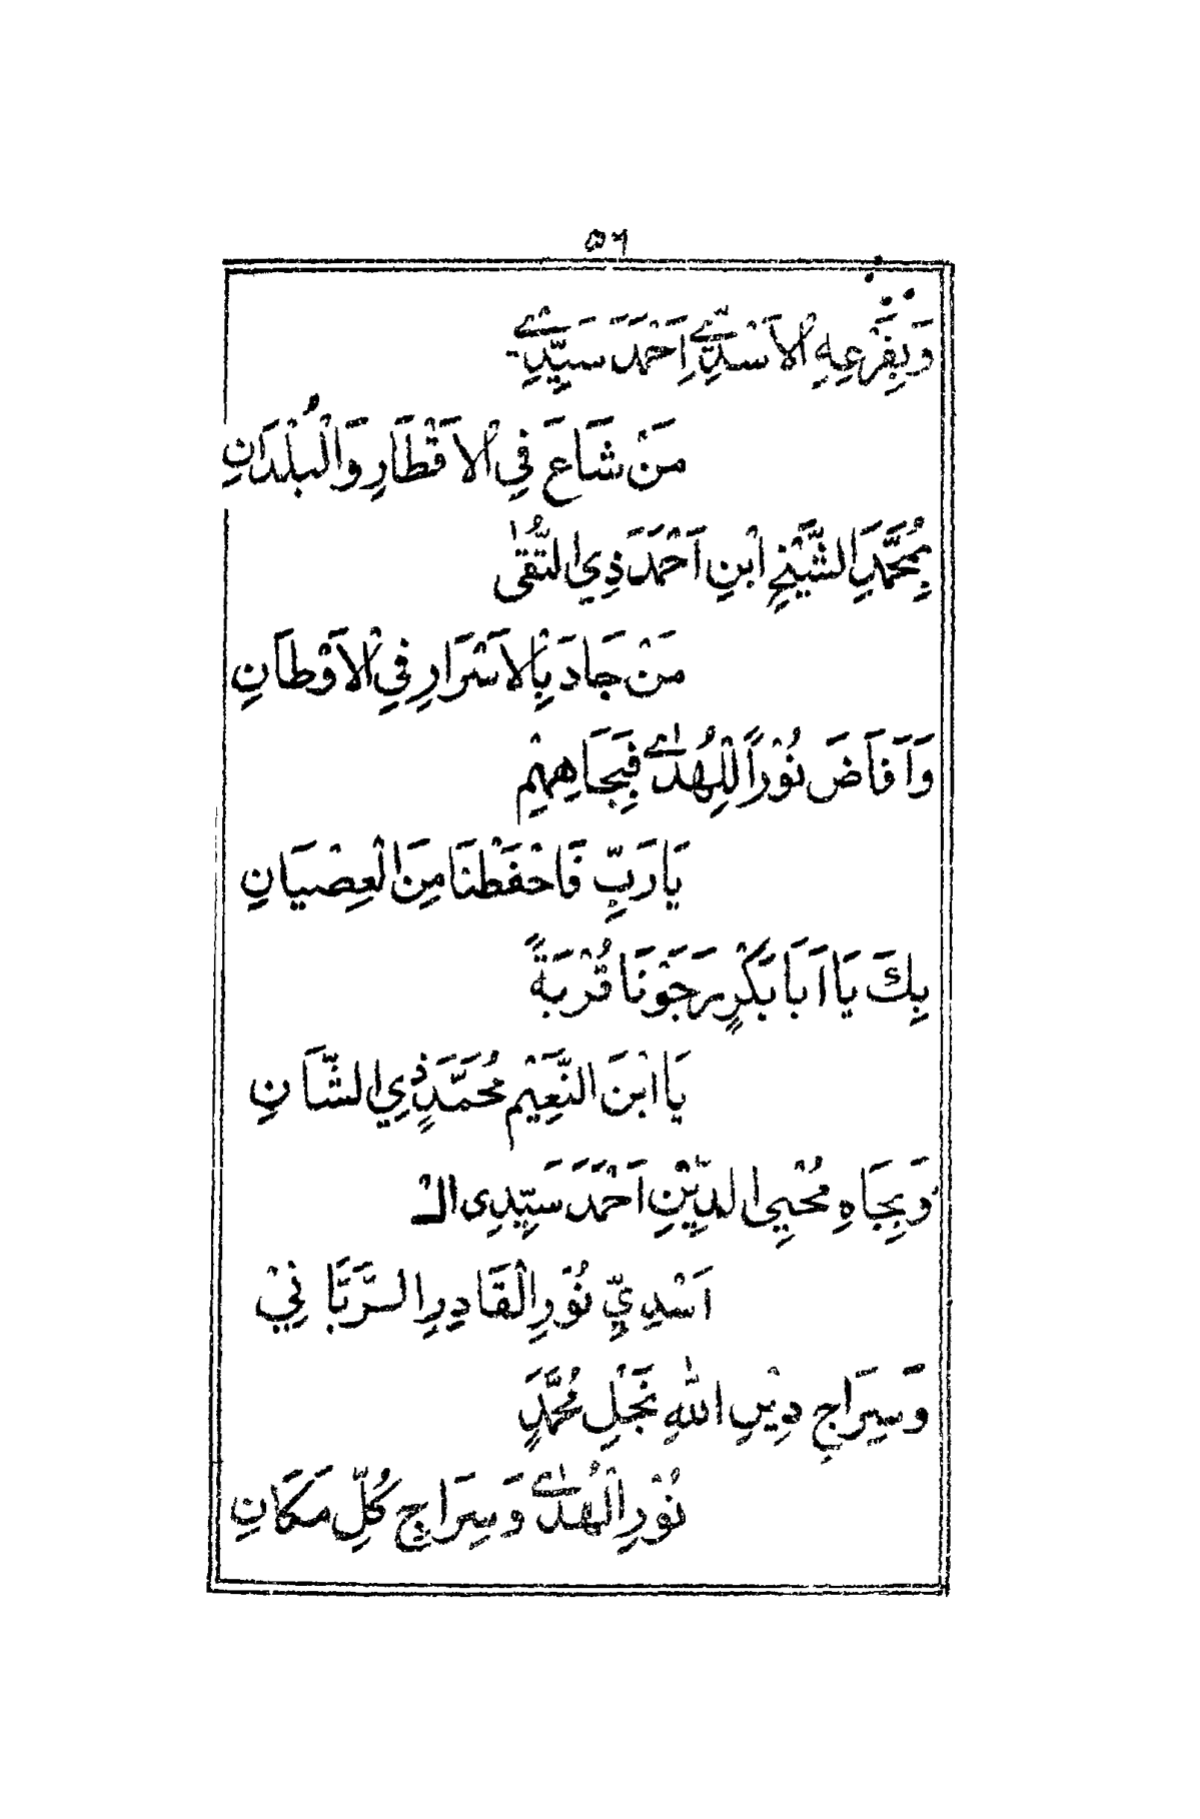 ٥٦
وَبِفَرْعِهِ الْاَسْدِيِّ اَحْمَدَ سَيِّدِيْ
مَنْ شَاعَ فِي الْاَقْطَارِ وَالْبُلْدَانِ
بِمُحَمَّدِ الشَّيْخِ ابْنِ اَحْمَدَ ذِي التُّقٰى
مَنْ جَادَ بِالْاَسْرَارِ فِي الْاَوْطَانِ
وَاَفَاضَ نُوْرًا لِلْهُدٰى فَبِجَاهِهِمْ
يَا رَبِّ فَاحْفَظْنَا مِنَ الْعِصْيَانِ
بِكَ يَا اَبَا بَكْرٍ رَجَوْنَا قُرْبَةً
يَا ابْنَ النَّعِيْمِ مُحَمَّدٍ ذِي الشَّانِ
وَبِجَاهِ مُحْيِي الدِّيْنِ اَحْمَدَ سَيِّدِى الْـ
اَسْدِيِّ نُوْرِ الْقَادِرِ الرَّبَّانِيْ
وَسِرَاجِ دِيْنِ اللهِ نَجْلِ مُحَمَّدٍ
نُوْرِ الْهُدٰى وَسِرَاجِ كُلِّ مَكَانِ